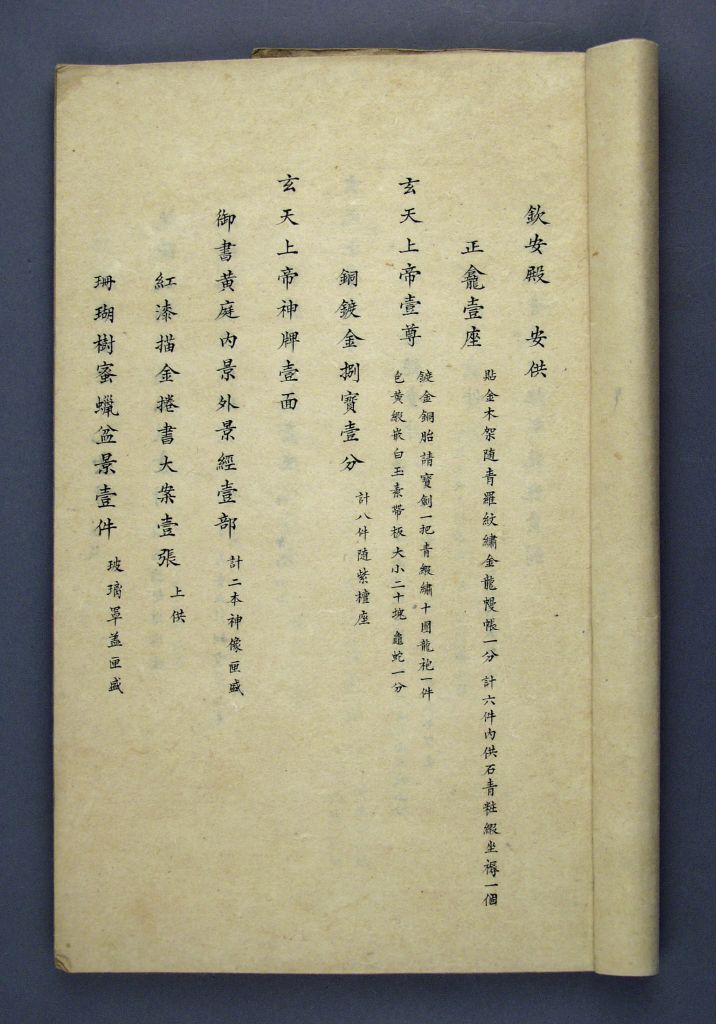 欽安殿 安供
正龕壹座
貼金木架随青羅紋繡金龍幔帳一分 計六件内供石青粧緞坐褥一個
玄天上帝壹尊
鍍金銅胎請寶劍一把青緞繡十團龍袍一件
色黄緞嵌白玉素帶板大小二十塊龜蛇一分
銅鍍金捌寶壹分
計八件随紫檀座
玄天上帝神牌壹面
御書黄庭内景外景經壹部
計二本神像匣盛
紅漆描金捲書大案壹張
上供
珊瑚樹蜜蠟盆景壹件
玻璃罩盖匣盛